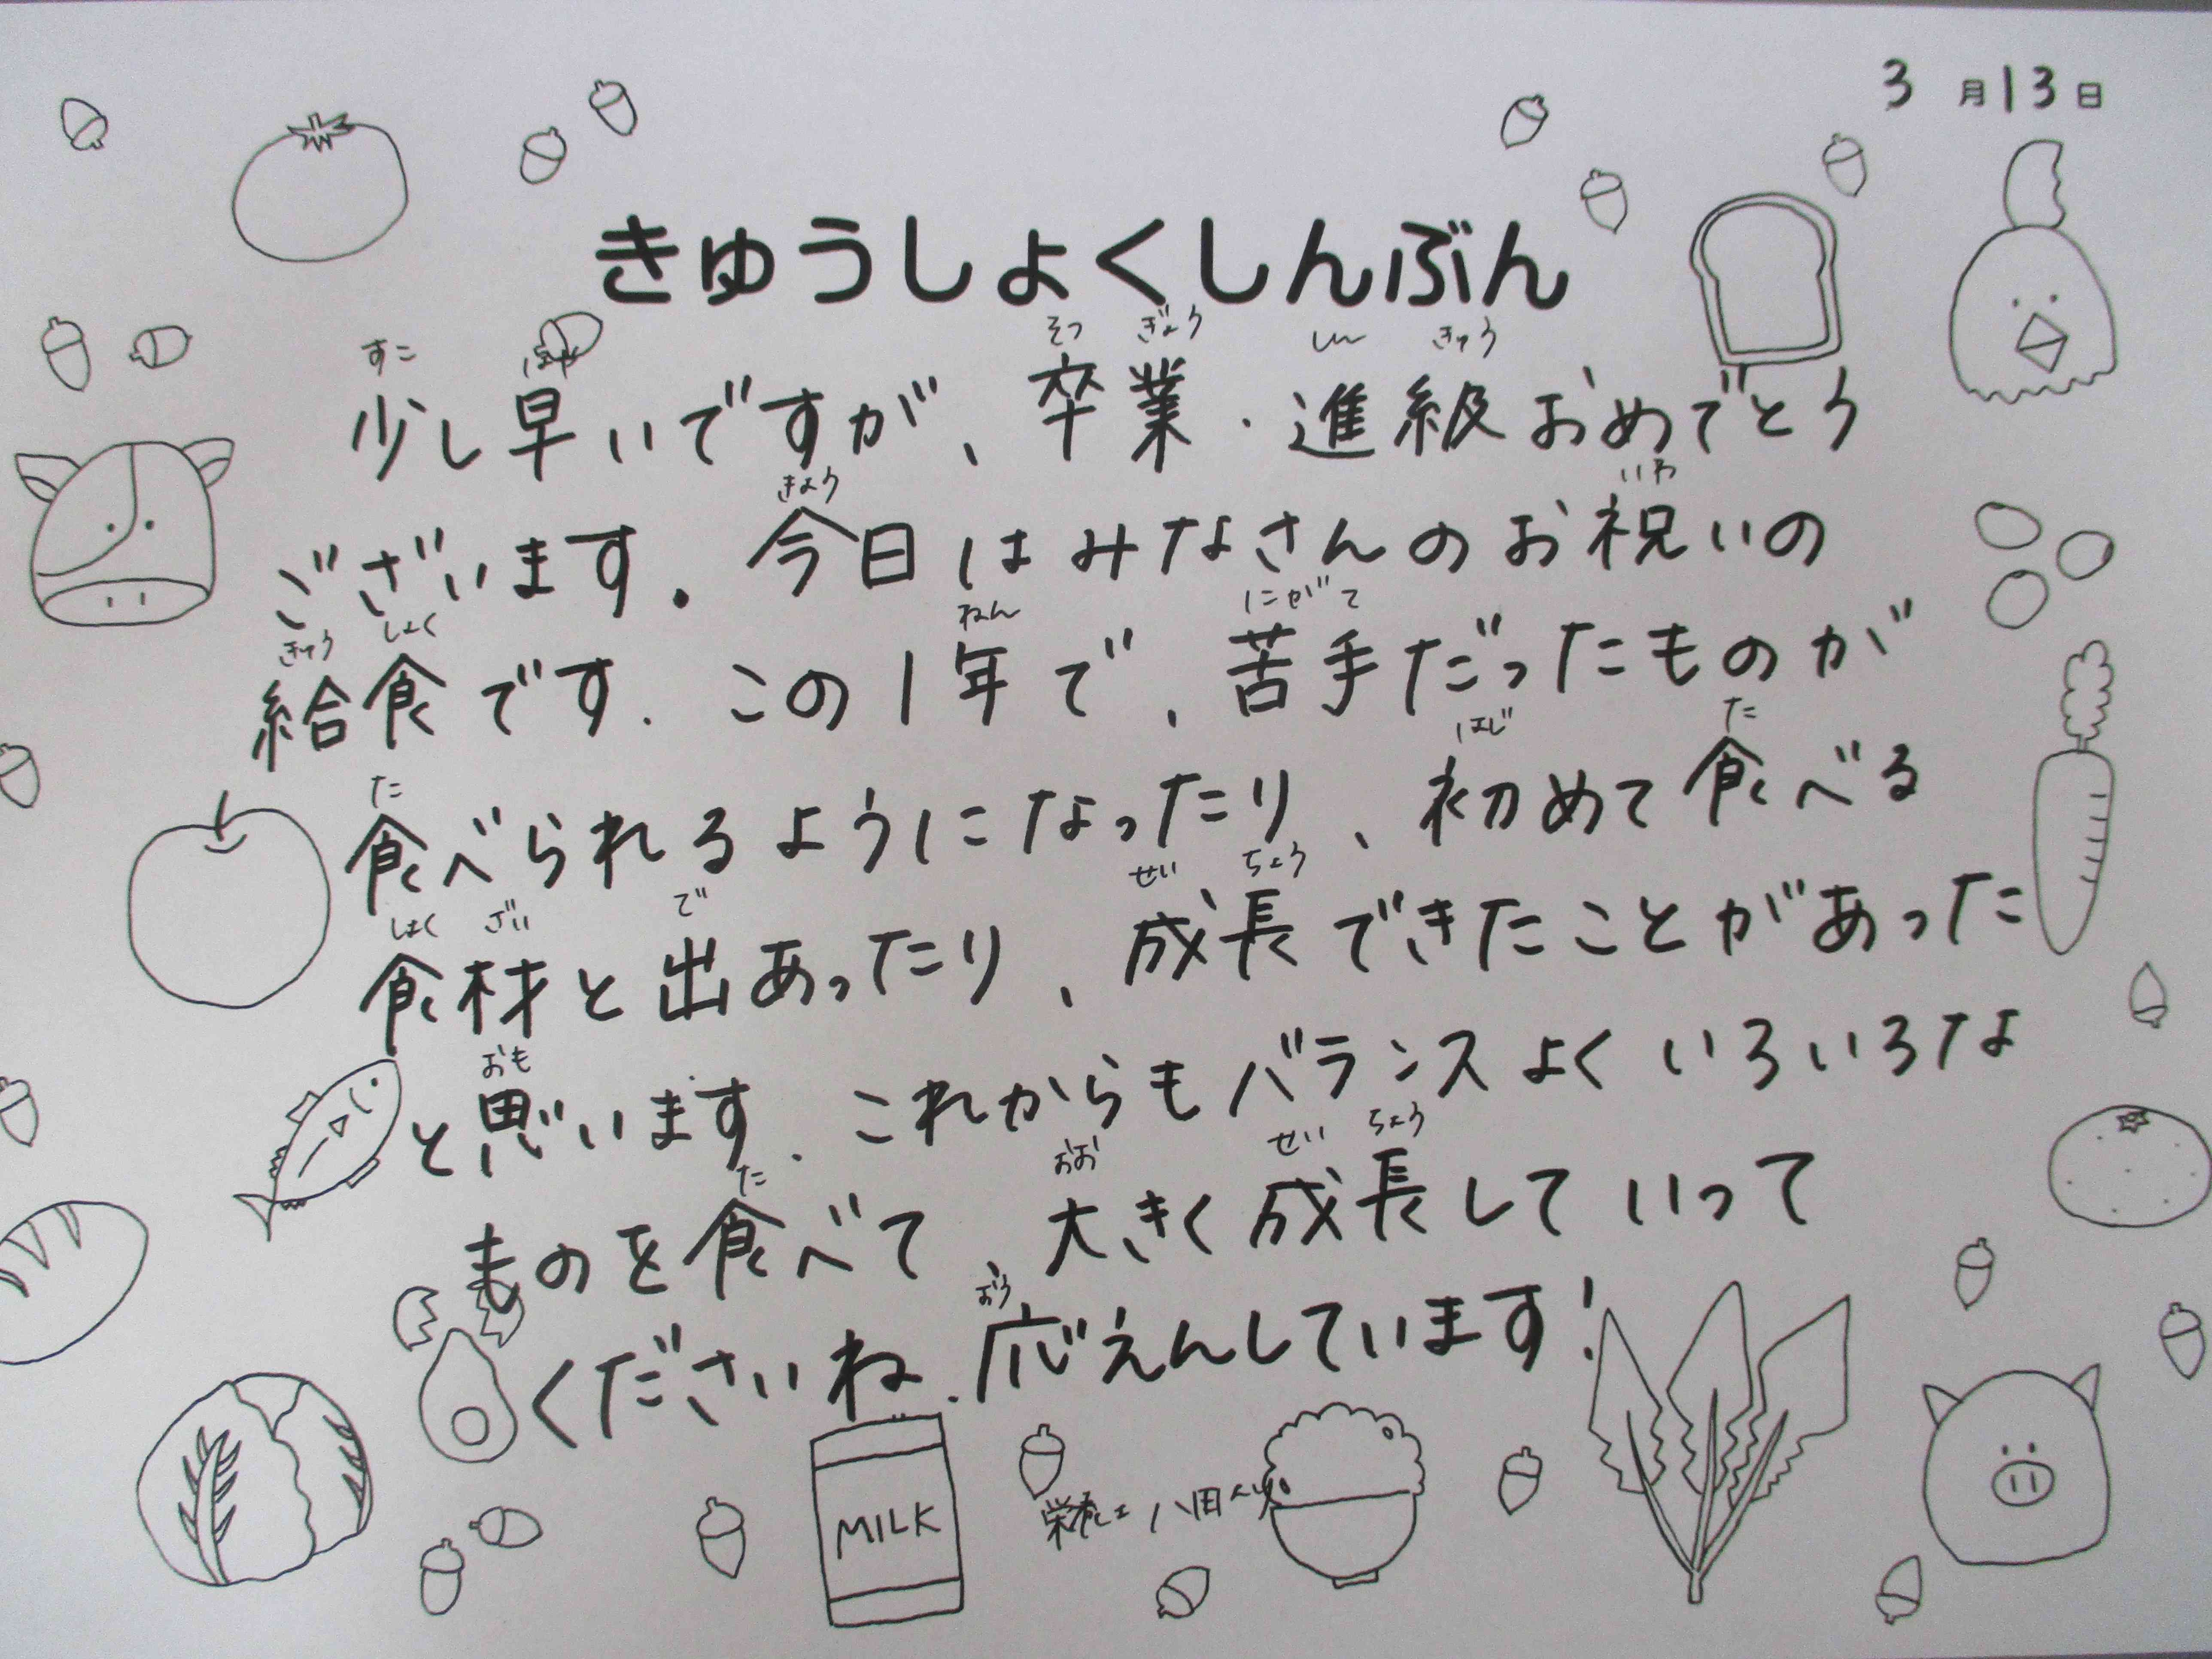 3月13日
きゅうしょくしんぶん
少し早いですが、卒業・進級おめでとう
ございます。今日はみなさんのお祝いの
給食です。この1年で、苦手だったものが
食べられるようになったり、初めて食べる
食材と出あったり、成長できたことがあった
と思います。これからもバランスよくいろいろな
ものを食べて、大きく成長していって
くださいね。応えんしています!
MILK